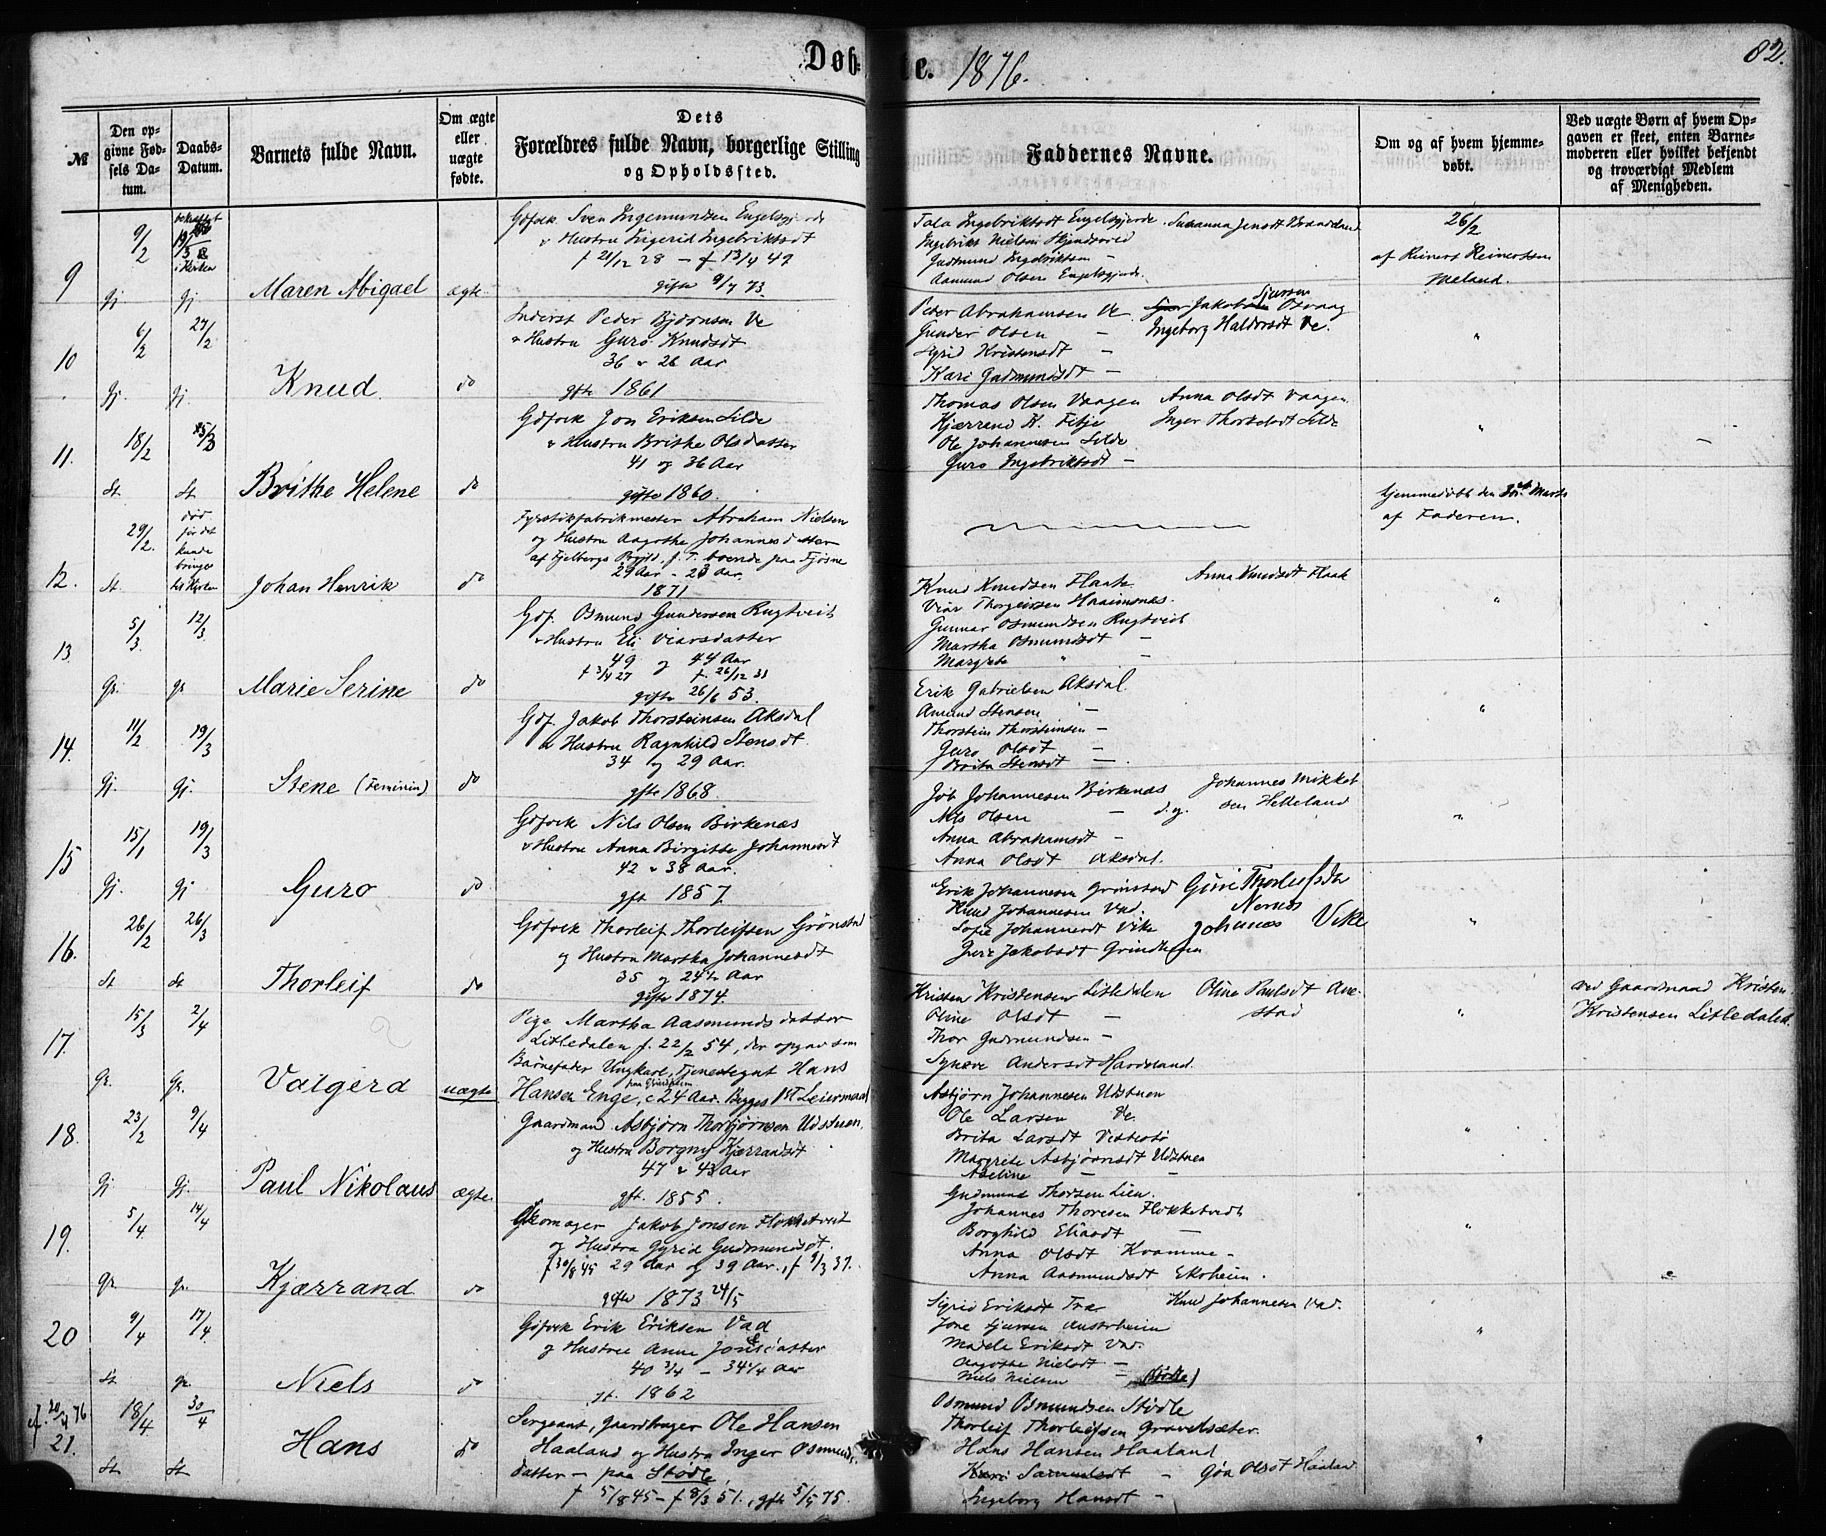 Døb-
te. 1876.
82.
№
Den op-
givne Fød-
sels Da-
tum.
Daabs-
Datum.
Barnets fulde Navn.
Om ægte
eller
uægte
fødte.
Dets
Forældres fulde Navn, borgerlige Stilling
og Opholdssted.
Faddernes Navne.
Om og af hvem hjemme-
døbt.
Ved uægte Børn af hvem Op-
gaven er skeet, enten Barne-
moderen eller hvilket bekjendt
og troværdigt Medlem
af Menigheden.
9
9/2
i Kirken
Maren Abigael
ægte
Gdfolk Sven Ingemundsen Engelsgjerde
& Hustru Ingerid Ingebriktsdt
f 21/12 28 – f 13/4 49
gifte 9/7 73.
Tala Ingebriktsdt Engelsgjerde. Susanna Jensdt
Ingebrikt Nielsen
Gudmund Ingebriktsen –
Aamund Olsen Engelsgjerde.
26/2
af Reinert Reinertsen
Meland.
10
6/2
27/2
Knud
do
Inderst Peder Bjørnsen Ve
& Hustru Guro Knudsdt
36 & 26 Aar
gfte 1861
Peder Abrahamsen Ve Jakob Sjursen Osvaag
Gunder Olsen – Ingeborg Haldorsdt Ve.
Sigrid Kristensdt –
Kari Gudmundsdt –
"
11.
18/2
Brithe Helene
do
Gdfolk Jon Eriksen Silde
& Hustru Brithe Olsdatter
41 og 36 Aar
gifte 1860.
Thomas Olsen Vaagen Anna Olsdt Vaagen
Kjærrend K. Fitje Inger Thorbsdt Silde
Ole Johannesen Silde
Guro Ingebriktsdt –
"
12.
29/2.
død
før det
kunde
bringes
til Kirken
Johan Henrik
do
Fyrstikfabrikmester Abraham Nielsen
og Hustru Aagothe Johannesdatter
af Fjelbergs Prgjld, f. T. boende paa Fjøsne
29 Aar – 23 Aar.
1871
hjemmedøbt den Marts
af Faderen.
13.
5/3
12/3
Marie Serine
do
Gdf. Osmund Gundersen Rugtveit
& Hustru Eli Viarsdatter
49 og 44 Aar
f 3/4 27 f. 26/12 31
gifte 26/6 53.
Knud Knudsen Flaate Anna Knudsdt Flaate
Viar Thorgeirsen Haaimsnæs.
Gunnar Osmundsen Rugtveit
Martha Osmundsdt –
Margrete " –
"
14.
11/2
19/3
Stene (Feminin)
do
Gdf. Jakob Thorsteinsen Aksdal
& Hustru Ragnhild Stensdt.
34 og 29 Aar.
gfte 1868.
Erik Gabrielsen Aksdal.
Amund Stensen –
Thorstein Thorsteinsen –
Guro Olsdt –
Brita Stensdt –
"
15
15/1
19/3
Guro
do
Gdfolk Nils Olsen Birkenæs
& Hustru Anna Birgitte Johannesdt
42 & 38 Aar.
gft 1857.
Job Johannesen Birkenæs Johannes Mikkel-
Nils Olsen – d.y. sen Helleland
Anna Abrahamsdt –
Anna Olsdt Aksdal.
"
16.
26/2
26/3
Thorleif
do
Gdfolk Thorleif Thorleifsen Grønstad
og Hustru Martha Johannesdt
35 og 24½ Aar
gifte 1874
Erik Johannesen Grønstad Guri Thorleifsdtr
Knud Johannesen Vad. Nernes
Sofie Johannesdt Vike Johannes Vike
Guri Jakobsdt Grindheim
"
17.
15/3
2/4
Valgerd
uægte
Pige Martha Aasmundsdatter
Litledalen f. 22/2 54, der opgav som
Barnefader Ungkarl, Tjenestegut Hans
Hansen Enge, fra Grindheim c 24 Aar. Begges 1st Leiermaal
Kristen Kristensen Litledalen Oline Paulsdt Ane-
Oline Olsdt – stad
Thor Gudmundsen –
Synneve Andersdt Hardeland.
"
ved Gaardmand Kristen
Kristensen Litledalen.
18.
23/2
9/4
Paul Nikolaus
ægte
Gaardmand Asbjørn Thorbjørnsen Udstuen.
og Hustru Borgny Kjærrandsdt
47 & 43 Aar
gft. 1855.
Asbjørn Johannesen Udstuen
Ole Larsen Ve
Brita Larsdt Vestersø
Margrete Asbjørnsdt Udstuen
Abeline – –
"
19.
5/4
14/4
Kjærrand
do
Skomager Jakob Jonsen Flokketveit
og Hustru Gyrid Gudmundsdt.
f 30/8 45 29 Aar og 39 Aar., f 9/3 37.
gifte 1873 24/5
Gudmund Thorsen Lien.
Johannes Thoresen Flokketvedt
Borghild Eliasdt –
Anna Olsdt Kvamme –
Anna Aasmundsdt Ekrheim.
"
20
9/4
17/4
Niels
do
Gdfolk Erik Eriksen Vad
og Hustru Anne Jonsdatter
40 3/4 – 34 1/4 Aar
gft. 1862
Sigrid Eriksdt Tvær Knud Johannesen Vad.
Jone Sjursen Austerheim
Madele Eriksdt Vad.
Aagothe Nielsdt –
Niels Nielsen – (Stødle)
"
f. 20/4 76
21.
18/4
30/4
Hans
do
Sergeant, Gaardbruger Ole Hansen
Haaland og Hustru Inger Osmunds-
datter – paa Stødle,
f 5/8 45 – f 8/3 51., gfte 5/5 75.
Osmund Osmundsen Stødle
Thorleif Thorleifsen Gravelsæter.
Hans Hansen Haaland
Kari Samuelsdt – Gøa Olsdt Haaland
Ingeborg Hansdt –
"